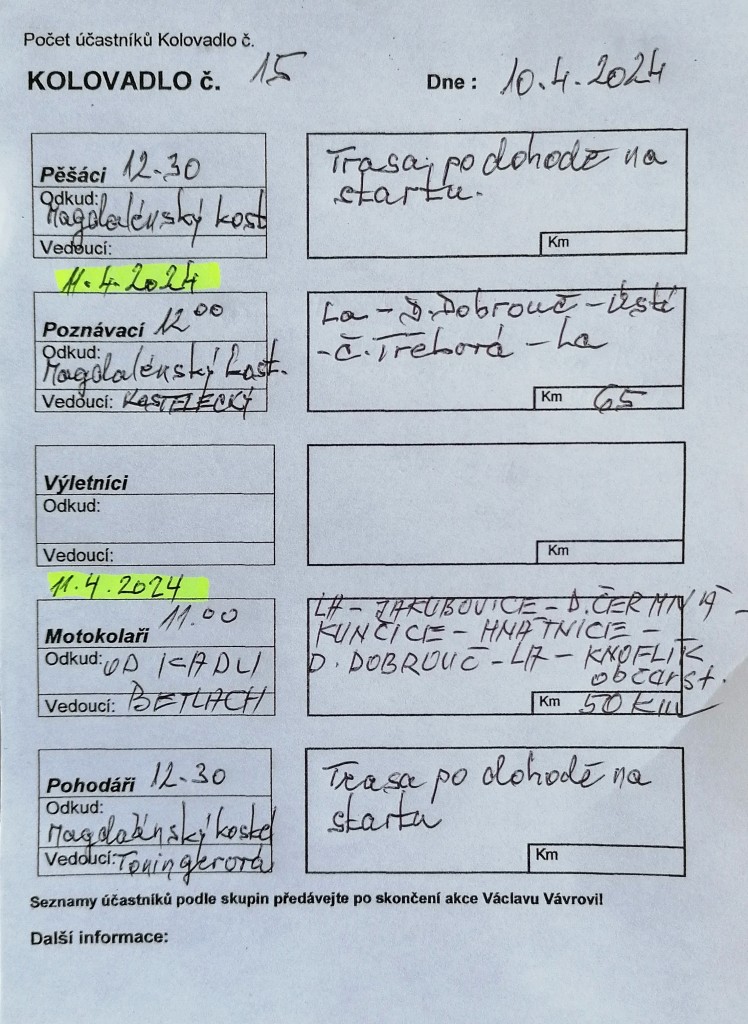 Počet účastníků Kolovadlo č.
KOLOVADLO č. 15 Dne : 10.4.2024
Pěšáci 12-30
Odkud:
Magdalénský kost
Vedoucí:
Trasa, po dohodě na
startu.
Km
11.4.2024
Poznávací 12 00
Odkud:
Magdalénský kost.
Vedoucí: KASTELECKÝ
La - D. Dobrouč - Ústí
- Č. Třebová - La
Km 65
Výletníci
Odkud:
Vedoucí:
Km
11.4.2024
Motokolaři 11.00
Odkud: OD KADLI
Vedoucí: BETLACH
LA - JAKUBOVICE - D. ČERMNÁ -
KUNČICE - HNÁTNICE -
D. DOBROUČ - LA - KNOFLÍK
občarst.
Km 50 Km
Pohodáři 12-30
Odkud:
Magdalénský kostel
Vedoucí: Toningerová
Trasa po dohodě na
startu
Km
Seznamy účastníků podle skupin předávejte po skončení akce Václavu Vávrovi!
Další informace: